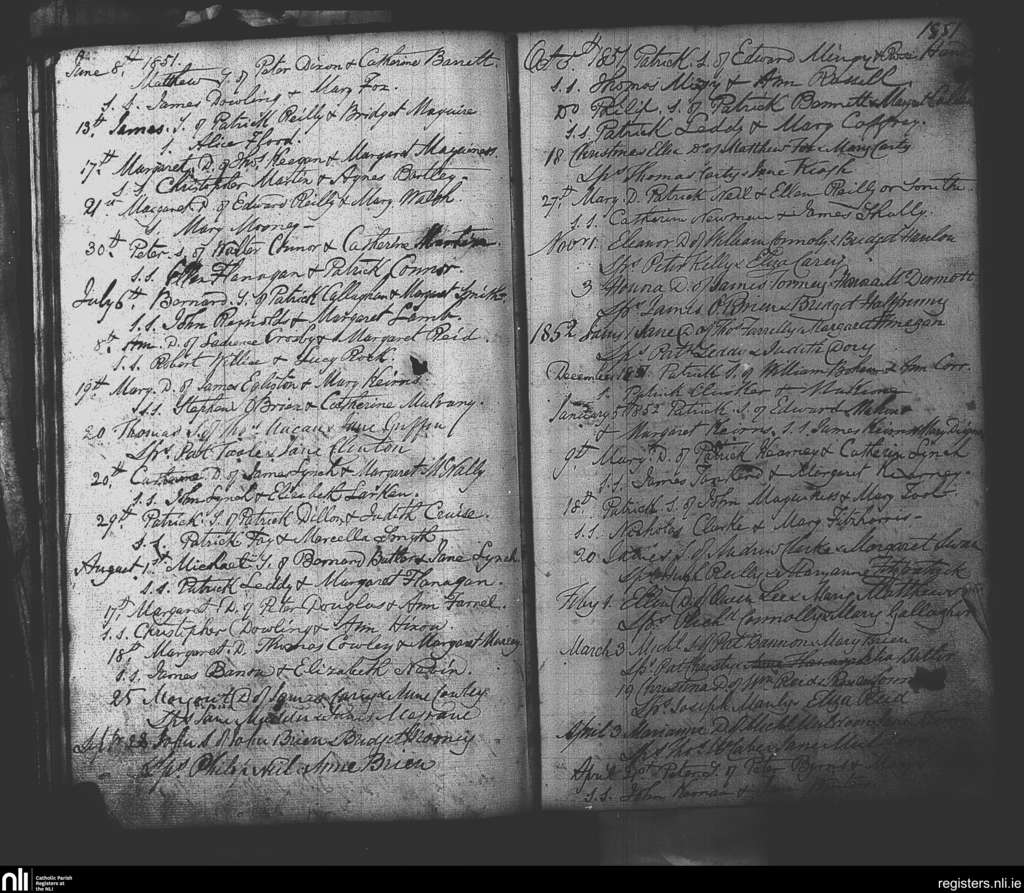 June 8th 1851.
Matthew S. of Peter Dixon & Catherine Barrett.
S. S. James Dowling & Mary Fox.
13th James. S. of Patrick Reilly & Bridget Maguire
S. Alice Fford.
17th Margaret. D. of Thos. Keegan & Margaret Maguiness.
S. S. Christopher Martin & Agnes Bartley.
21st Margaret. D. of Edward Reilly & Mary Walsh.
S. Mary Mooney
30th Peter. S. of Walter Connor & Catherine
S.S. Ellen Flanagan & Patrick Connor.
July 6th Bernard. S. of Patrick Callaghan & Margaret Smith
S.S. John Reynolds & Margaret Lamb.
8th Ann. D. of Crosby & Margaret Reid.
S.S. Robert Willis & Lucy Rock.
19th Mary. D. of James Egliston & Mary Keirns
S.S. Stephen O'Brien & Catherine Mulvany.
20 Thomas S. of Thos. & Anne Griffin
Sps. Patt Toole & Jane Clinton
20th Catherine D. of James Lynch & Margaret McNally
S.S. John Lynch & Elizabeth Larken.
29th Patrick. S. of Patrick Dillon & Judith Cruise.
S.S. Patrick Fry & Marcella Smyth
August 1st Michael S. of Bernard Butler & Jane Lynch
S.S. Patrick Leddy & Margaret Flanagan.
17th Margaret. D. of Peter Douglas & Ann Farrel.
S.S. Christopher Dowling & Ann Dixon.
18th Margaret. D. Thomas Cowley & Margaret
S.S. James Baron & Elizabeth Nevin.
25 Margaret D. of & Anne Cowley
Sps Jane Madden &
28 John S. of John Brien & Bridget Mooney
Sps. Philip Neil & Anne Brien
1851
Oct 5th 1851 Patrick. S. of Edward & Rose
S.S. Thomas & Ann Russell
Do Philip. S. of Patrick Bennett & Margaret
S.S. Patrick Leddy & Mary Caffrey.
18 Christmas Eliza D. of Matthew Fox & Mary Carty
Sps. Thomas Carty & Jane Keogh
27th Mary. D. Patrick Neil & Ellen Reilly or Smith.
S.S. Catherine Newman & James Skully.
Novr 1. Eleanor D. of William Connolly & Bridget Hanlon
Sps. Peter Kelly & Eliza Carey
3 D. of James Tormey & McDermott
Sps. James O'Brien & Bridget Halfpenny
1852 Jany 1 Jane D. of Thos. Farrelly & Margaret Finegan
Sps. Patk. Leddy & Judith Dory
December 1851. Patrick S. of William & Ann Corr.
S. Patrick Clusker &
January 5th 1852 Patrick. S. of Edward
& Margaret Keirns. S.S. James Keirns & Mary
9th Mary. D. of Patrick Kearney & Catherine Lynch
S.S. James & Margaret Kearney.
18th Patrick. S. of John & Mary Toole
S.S. Nicholas Clarke & Mary Fitzharris
20 James S. of Andrew Clarke & Margaret
Sps. Hugh Reilly & Maryanne Fitzpatrick
Feby 1. Ellen D. of Owen Lee & Mary Matthews
Sps. Richd. Connolly & Mary Gallagher
March 3 Michl. S. of Pat Bannon & Mary Brien
Sps. Pat & Dalton
19 Christina D. of Wm Reid &
Sps. Joseph Manly & Eliza Reid
April 3 Maryanne D. of Michl
Sps. Thos. & Jane
April Peter S. of Peter Byrne &
S.S. John &
nli
Catholic Parish
Registers at
the NLI
registers.nli.ie